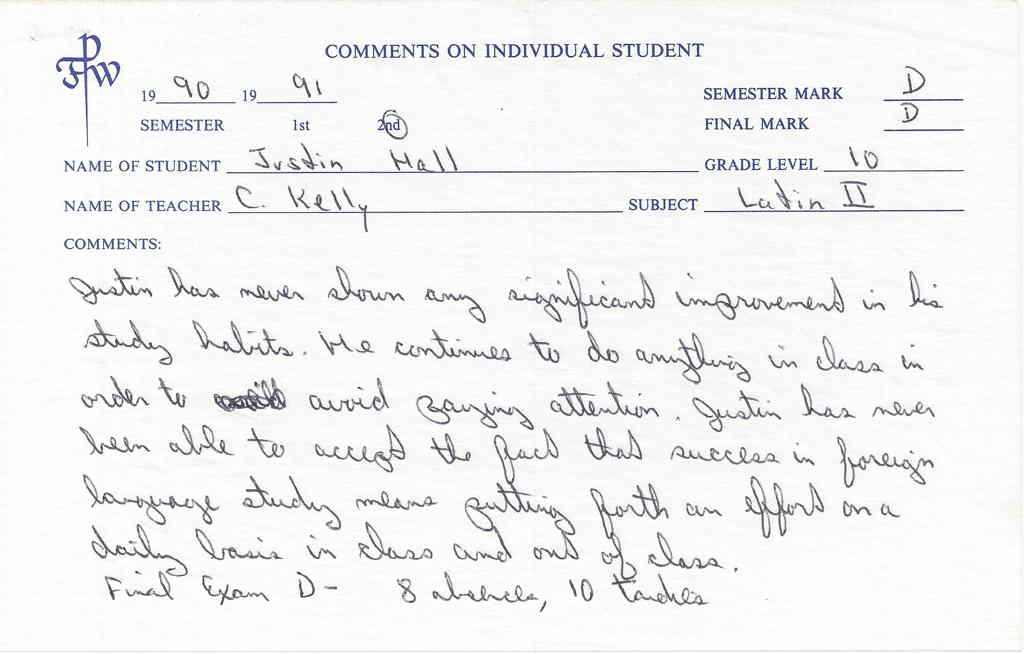 FPW
COMMENTS ON INDIVIDUAL STUDENT
1990 1991
SEMESTER MARK D
SEMESTER 1st 2nd
FINAL MARK D
NAME OF STUDENT Justin Hall GRADE LEVEL 10
NAME OF TEACHER C. Kelly SUBJECT Latin II
COMMENTS:
Justin has never shown any significant improvement in his
study habits. He continues to do anything in class in
order to avoid paying attention. Justin has never
been able to accept the fact that success in foreign
language study means putting forth an effort on a
daily basis in class and out of class.
Final Exam D- 8 absences, 10 tardies